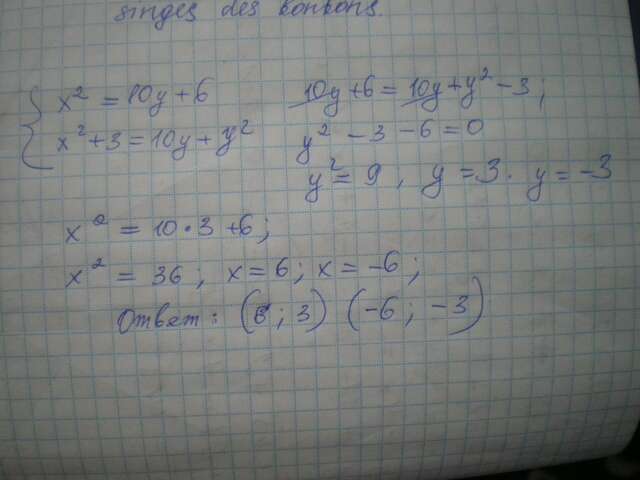 singes des bonbons.
{ x² = 10y + 6
x² + 3 = 10y + y²
10y + 6 = 10y + y² - 3;
y² - 3 - 6 = 0
y² = 9, y = 3. y = -3
x² = 10 • 3 + 6;
x² = 36; x = 6; x = -6;
Ответ: (6; 3) (-6; -3)